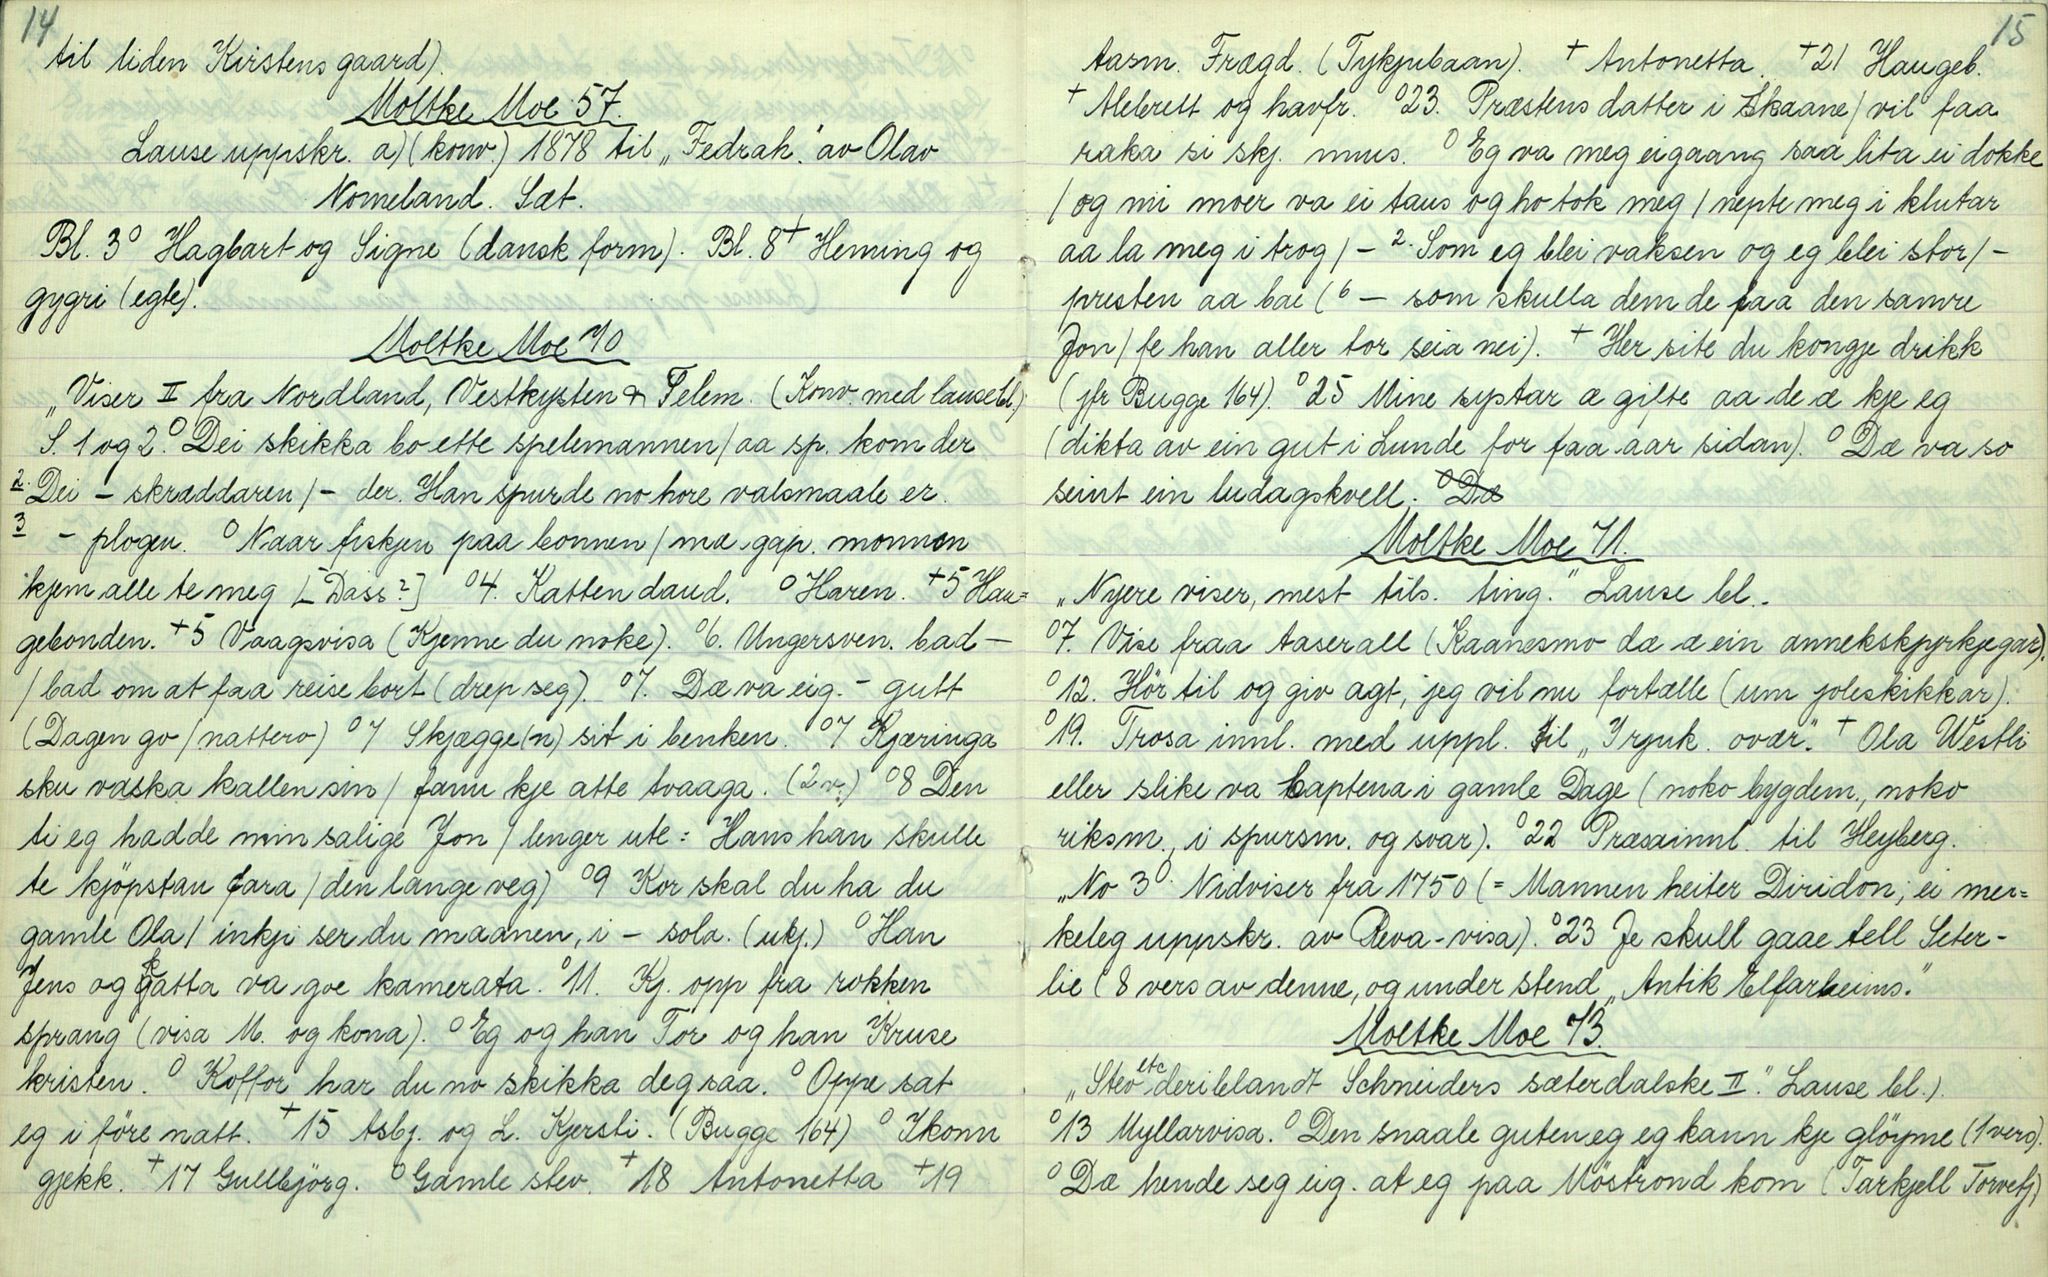 14
til liden Kirstens gaard).
Moltke Moe 57.
Lause uppskr. a) (konv.) 1878 til „Fedrah." av Olav
Nomeland. Sæt.
Bl. 3° Hagbart og Signe (dansk form). Bl. 8+ Heming og
gygri (egte).
Moltke Moe 70
„Viser II fra Nordland, Vestkysten & Telem. (Konv. med lause bl.)
S. 1 og 2.° Dei skikka bo ette spelemannen / aa sp. kom der
2. Dei – skræddaren / – der. Han spurde no hore valsmaale er.
3 – plogen. ° Naar fiskjen paa bonnen / mæ gap. monnen
kjem alle te meg [Dass?] °4. Katten daud. ° Haren. +5 Hau=
gebonden. +5 Vaagsvisa (Kjenne du noke). °6. Ungersven. bad –
/ bad om at faa reise bort (drep seg). °7. Dæ va eig. – gutt
(Dagen go / nattero) °7 Skjægge(n) sit i benken. °7 Kjæringa
sku vaska kallen sin / fann kje atte tvaaga. (2 v.) °8 Den
ti eg hadde min salige Jon / lenger ute: Hans han skulle
te kjöpstau fara / den lange veg) °9 Kor skal du ha du
gamle Ola / inkji ser du maanen, i – sola. (ukj.) ° Han
Jens og Gatta va goe kamerata. °11. Kj. opp fra rokken
sprang (visa M. og kona). ° Eg og han Tor og han Kruse
kristen. ° Koffor har du no skikka deg saa. ° Oppe sat
eg i före natt. +15 Asbj. og L. Kjersti. (Bugge 164) ° Ikonn
gjekk. +17 Gullbjörg. ° Gamle stev. +18 Antonetta +19
15
Aasm. Frægd. (Tykjubaan). + Antonetta. +21 Haugeb.
+ Alebrett og havfr. °23. Præstens datter i Skaane / vil faa
raka si skj. mus. ° Eg va meg eigaang saa lita ei dokke
/ og mi moer va ei taus og ho tok meg / nepte meg i klutar
aa la meg i trog / – 2. Som eg blei vaksen og eg blei stor / –
presten aa bae (6 – som skulla dem de faa den samre
Jon / fe han aller tor seia nei). + Her site du kongje drikk
(jfr Bugge 164). °25 Mine systar æ gilte aa de æ kje eg
(dikta av ein gut i Lunde for faa aar sidan). ° Dæ va so
seint ein ludagskvell. ° Dæ
Moltke Moe 71.
„Nyere viser, mest tils. ting." Lause bl. –
°7. Vise fraa Aaserall (Kaanesmo dæ æ ein annekskyrkjegar).
°12. Hör til og giv agt, jeg vil nu fortælle (um joleskikkar).
°19. Trosa innl. med uppl. til „Irjuk. ovær." + Ola Westli
eller slike va Captena i gamle Dage (noko bygdem., noko
riksm., i spursm. og svar). °22 Præsainnl. til Heyberg.
„No 3° Nidviser fra 1750 (= Mannen heiter Diridon; ei mer=
keleg uppskr. av Reva-visa). °23 Je skull gaae tell Seter-
lie (8 vers av denne, og under stend „Antik Elfarheims."
Moltke Moe 73.
„Stev etc deriblandt Schneiders sæterdalske II." Lause bl.).
°13 Myllarvisa. ° Den snaale guten eg eg kann kje glöyme (1 vers).
° Dæ hende seg eig. at eg paa Möstrond kom (Tarkjell Torvetj)